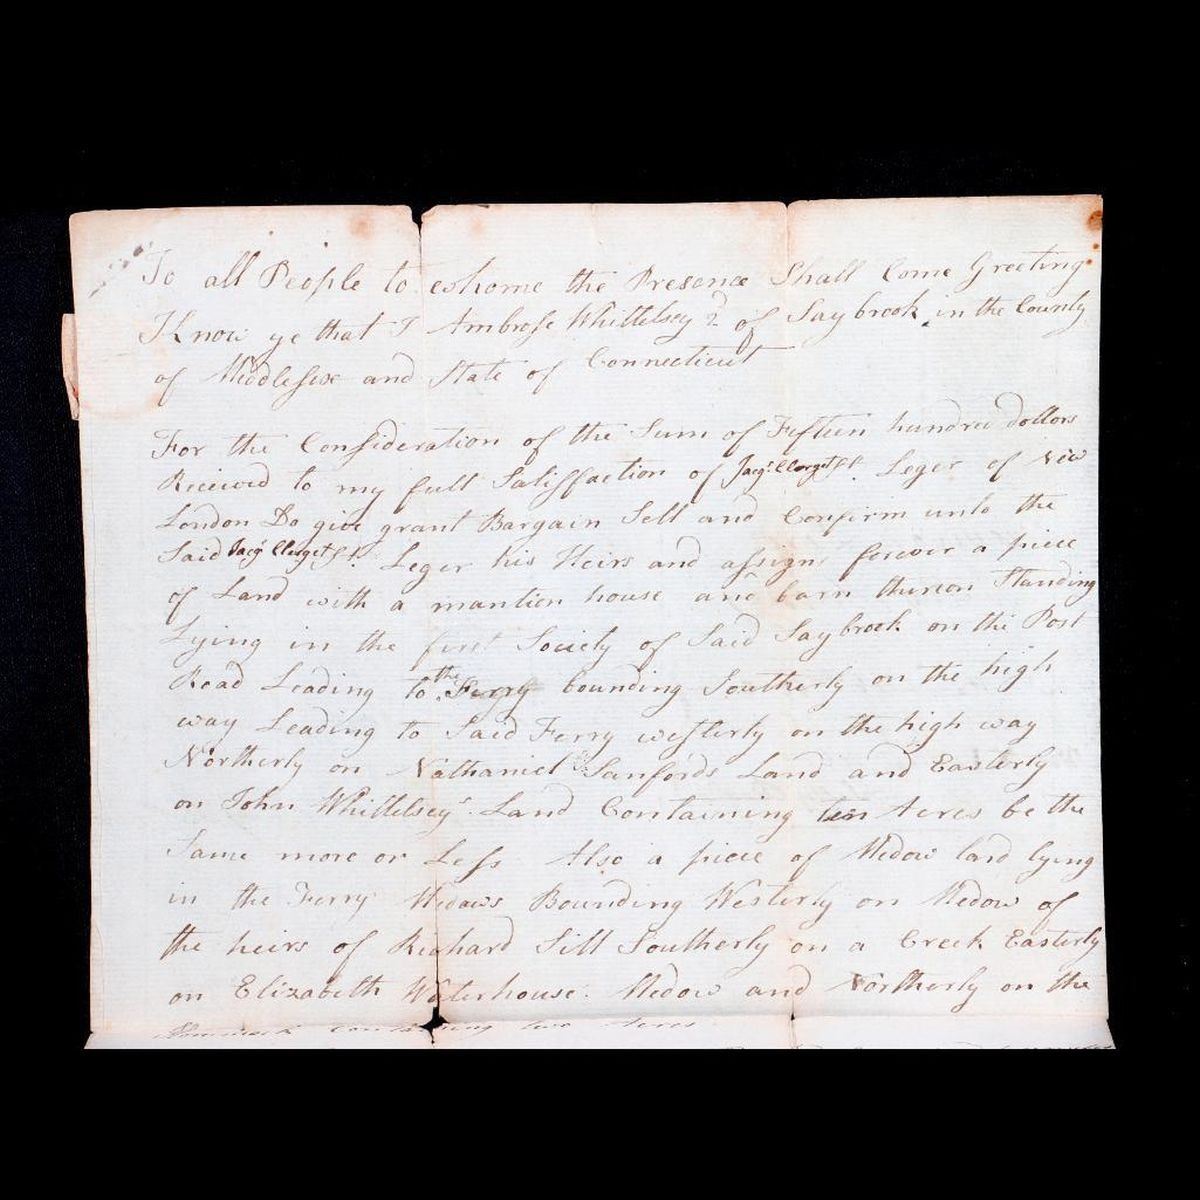 To all People to whome the Presence Shall Come Greeting
Know ye that I Ambrose Whittelsey 2d of Saybrook in the County
of Middlesex and State of Connecticut
For the Consideration of the Sum of Fifteen hundred dollors
Received to my full Satisfaction of Jacqs. Clerget St. Leger of New
London Do give grant Bargain Sell and Confirm unto the
Said Jacqs Clerget St. Leger his Heirs and assigns forever a piece
of Land with a mantion house and barn thereon Standing
Lying in the first Society of Said Saybrook on the Post
Road Leading to the Ferry bounding Southerly on the high
way Leading to Said Ferry westerly on the high way
Northerly on Nathaniel Sanfords Land and Easterly
on John Whittelsey's Land Containing ten Acres be the
Same more or Less Also a piece of Medow land lying
in the Ferry Medows Bounding Westerly on Medow of
the heirs of Richard Sill Southerly on a Creek Easterly
on Elizabeth Waterhouse Medow and Northerly on the
Hommock Containing two Acres